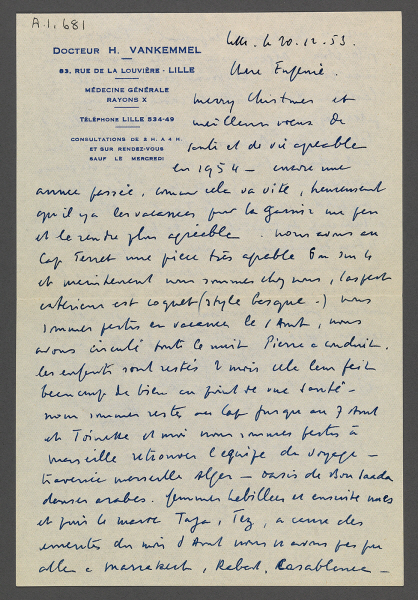 A.I, 681
DOCTEUR H. VANKEMMEL
63, RUE DE LA LOUVIÈRE - LILLE
MÉDECINE GÉNÉRALE
RAYONS X
TÉLÉPHONE LILLE 534-49
CONSULTATIONS DE 2 H. A 4 H.
ET SUR RENDEZ-VOUS
SAUF LE MERCREDI
Lille, le 20.12.53.
Chère Eugénie.
Merry Christmas et
meilleurs vœux de
santé et de vie agréable
en 1954 - encore une
année passée, comme cela va vite, heureusement
qu'il y a les vacances pour la garnir un peu
et la rendre plus agréable. nous avons au
Cap Ferret une pièce très agréable 6m sur 4
et maintenant nous sommes chez nous, l'aspect
extérieur est coquet (style basque.) nous
sommes partis en vacances le 1 Août, nous
avons circulé toute la nuit Pierre a conduit.
les enfants sont restés 2 mois cela leur fait
beaucoup de bien au point de vue santé -
nous sommes restés au Cap jusque au 7 Août
et Toinette et moi nous sommes partis à
Marseille retrouver l'équipe de voyage -
traversée Marseille Alger - oasis de Bou Saada
danses arabes. femmes habillées et ensuite nues
et puis le maroc Taza, Fez, a cause des
émeutes du mois d'Août nous n'avons pas pu
aller a Marrakech, Rabat, Casablanca -